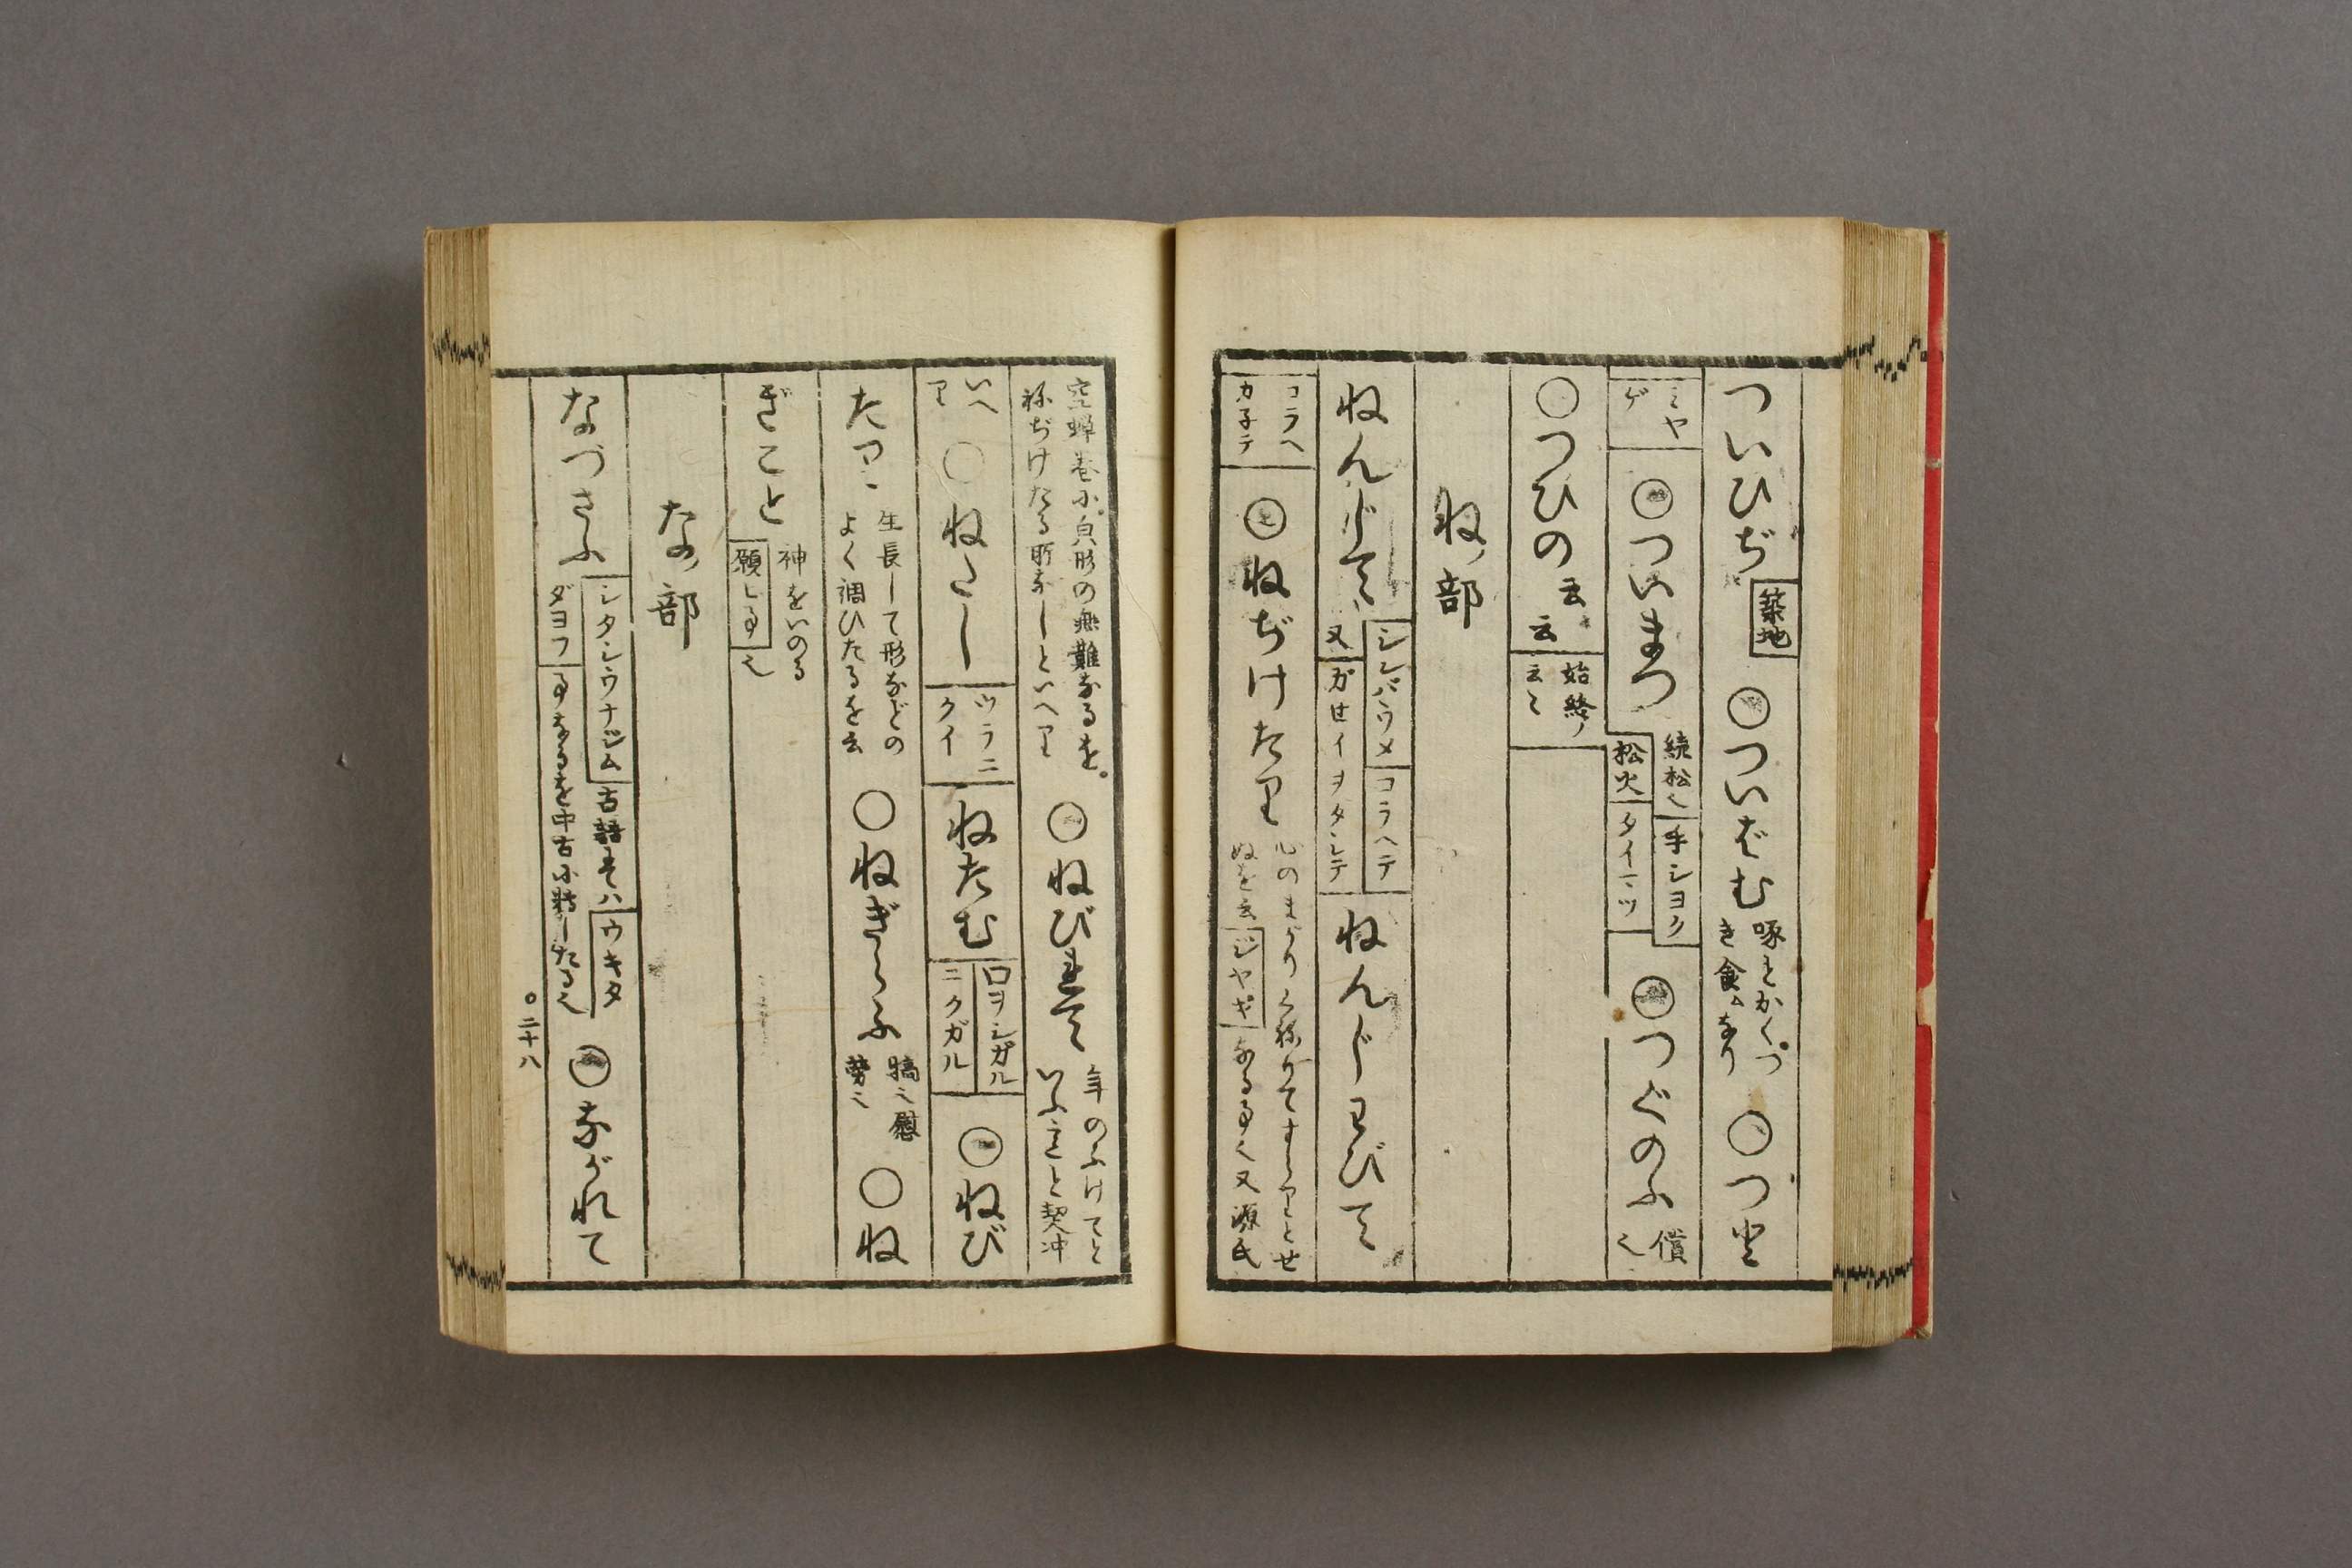 ついひぢ 築地 ○ついばむ 啄とかく。つき食ムなり ○つと
ミヤゲ ○ついまつ 続松也 手シヨク 松火 タイマツ ○つぐのふ 償也
○つひの云云 始終ノ云々
ねノ部
ねんじて シンバウメ コラヘテ 又 ガセイヲタシテ ねんじわびて
コラヘカ子テ ○ねぢけたり 心のまがりくねりてすらりとせぬを云 ジヤギ なる事也 又源氏
空蝉巻に㒵形の無難なるを。ねぢけたる所なしといへり ○ねびれて 年のふけてといふ意と契冲
いへり ○ねたし ウラニクイ ねたむ ロヲシガル ニクガル ○ねび
たり 生長して形などのよく調ひたるを云 ○ねぎらふ 犒也慰労也 ○ね
ぎこと 神をいのる 願事也
なノ部
なづさふ シタシウナジム 古語では ウキタダヨフ 事なるを中古に転したる也 ○ながれて
○二十八